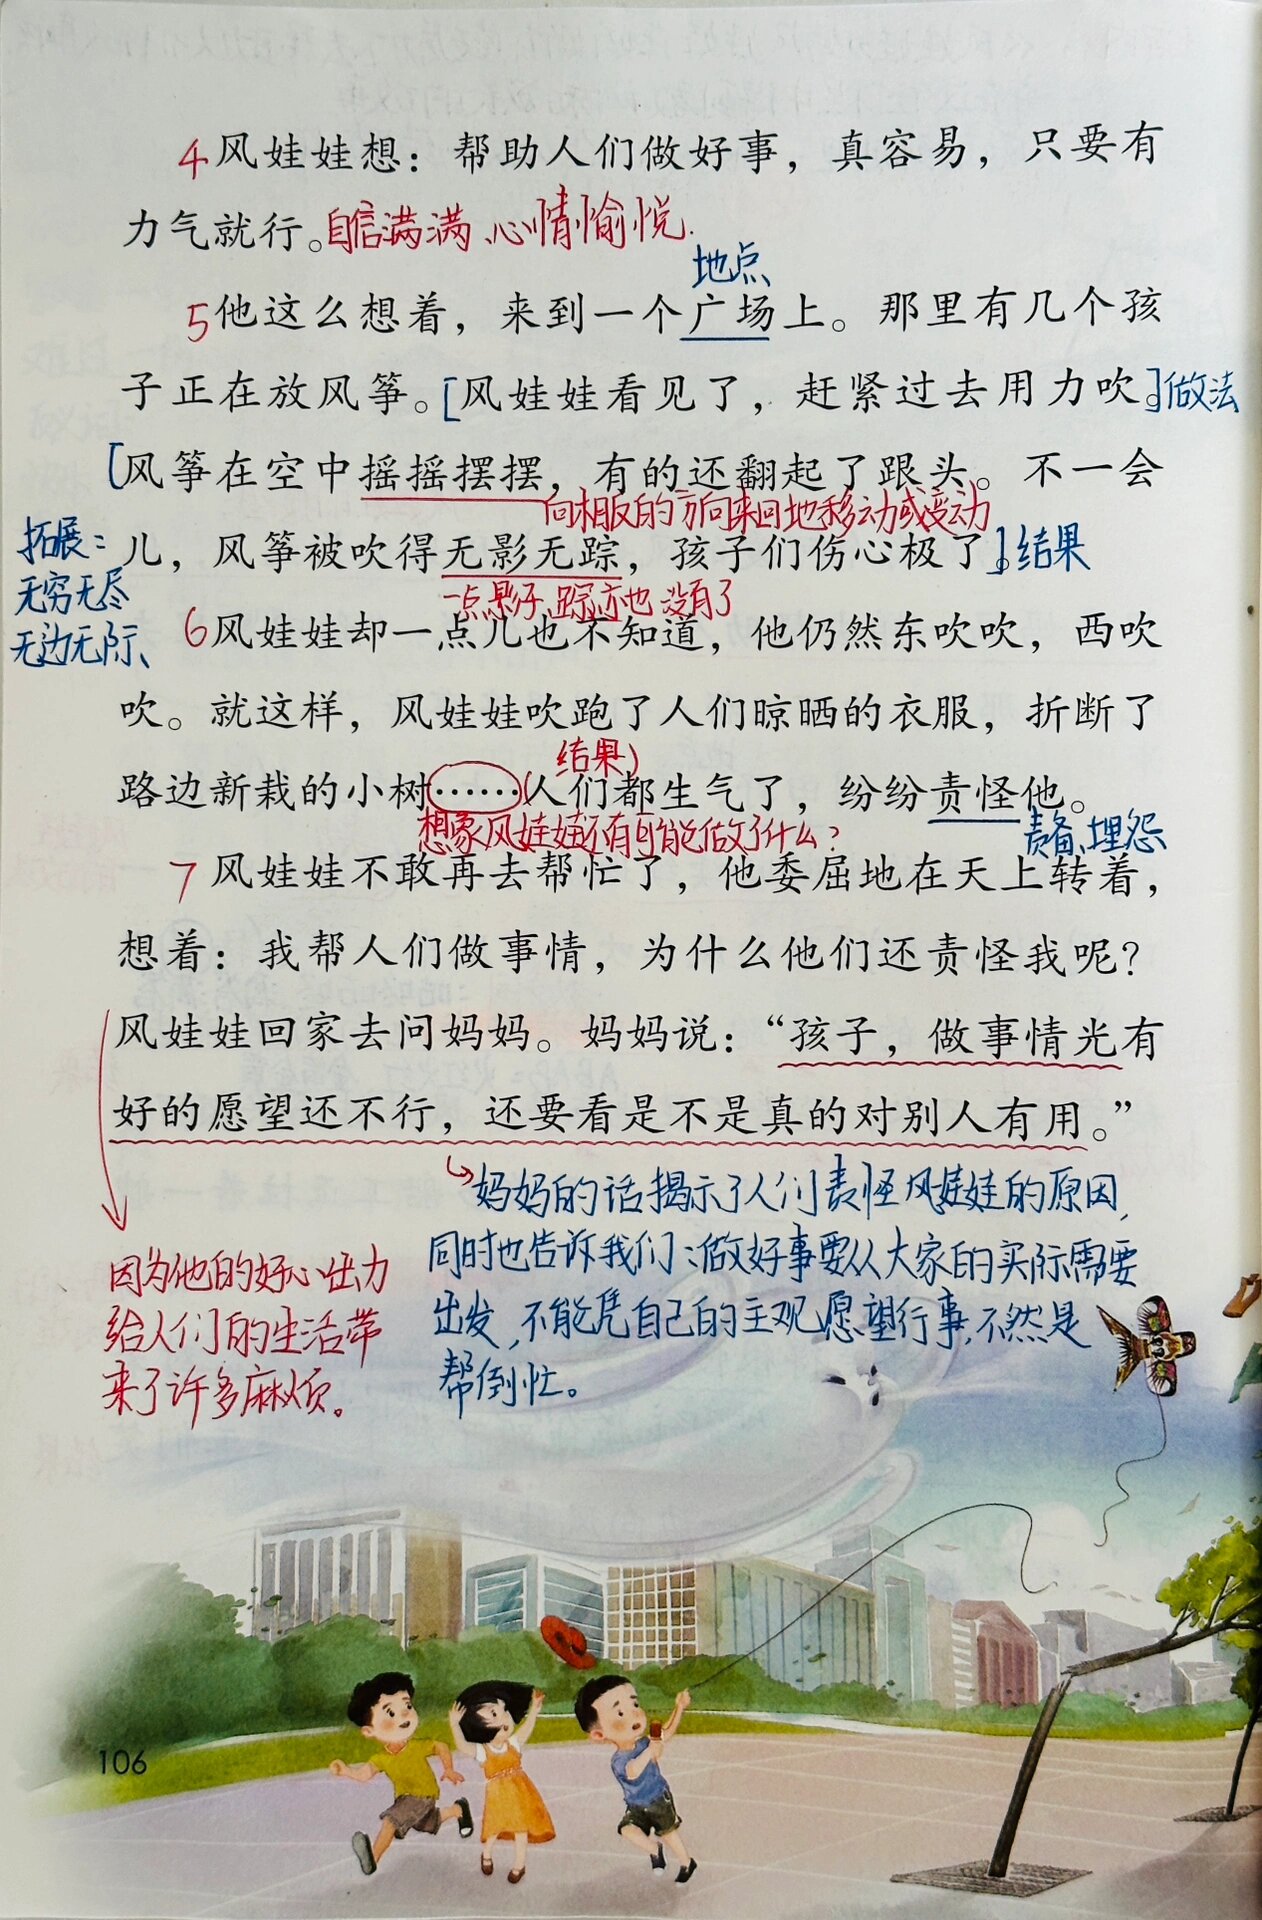 4风娃娃想：帮助人们做好事，真容易，只要有
力气就行。自信满满、心情愉悦.
地点
5他这么想着，来到一个广场上。那里有几个孩
子正在放风筝。[风娃娃看见了，赶紧过去用力吹。]做法
[风筝在空中摇摇摆摆，有的还翻起了跟头。不一会
向相反的方向来回地移动或变动
儿，风筝被吹得无影无踪，孩子们伤心极了。]结果
一点影子、踪迹也没有了
拓展：
无穷无尽
无边无际、
6风娃娃却一点儿也不知道，他仍然东吹吹，西吹
吹。就这样，风娃娃吹跑了人们晾晒的衣服，折断了
结果)
路边新栽的小树……(人们都生气了，纷纷责怪他。
想象风娃娃还有可能做了什么？
责备、埋怨
7风娃娃不敢再去帮忙了，他委屈地在天上转着，
想着：我帮人们做事情，为什么他们还责怪我呢？
风娃娃回家去问妈妈。妈妈说：“孩子，做事情光有
好的愿望还不行，还要看是不是真的对别人有用。”
妈妈的话揭示了人们责怪风娃娃的原因，
同时也告诉我们：做好事要从大家的实际需要
出发，不能凭自己的主观愿望行事，不然是
帮倒忙。
因为他的好心出力
给人们的生活带
来了许多麻烦。
106